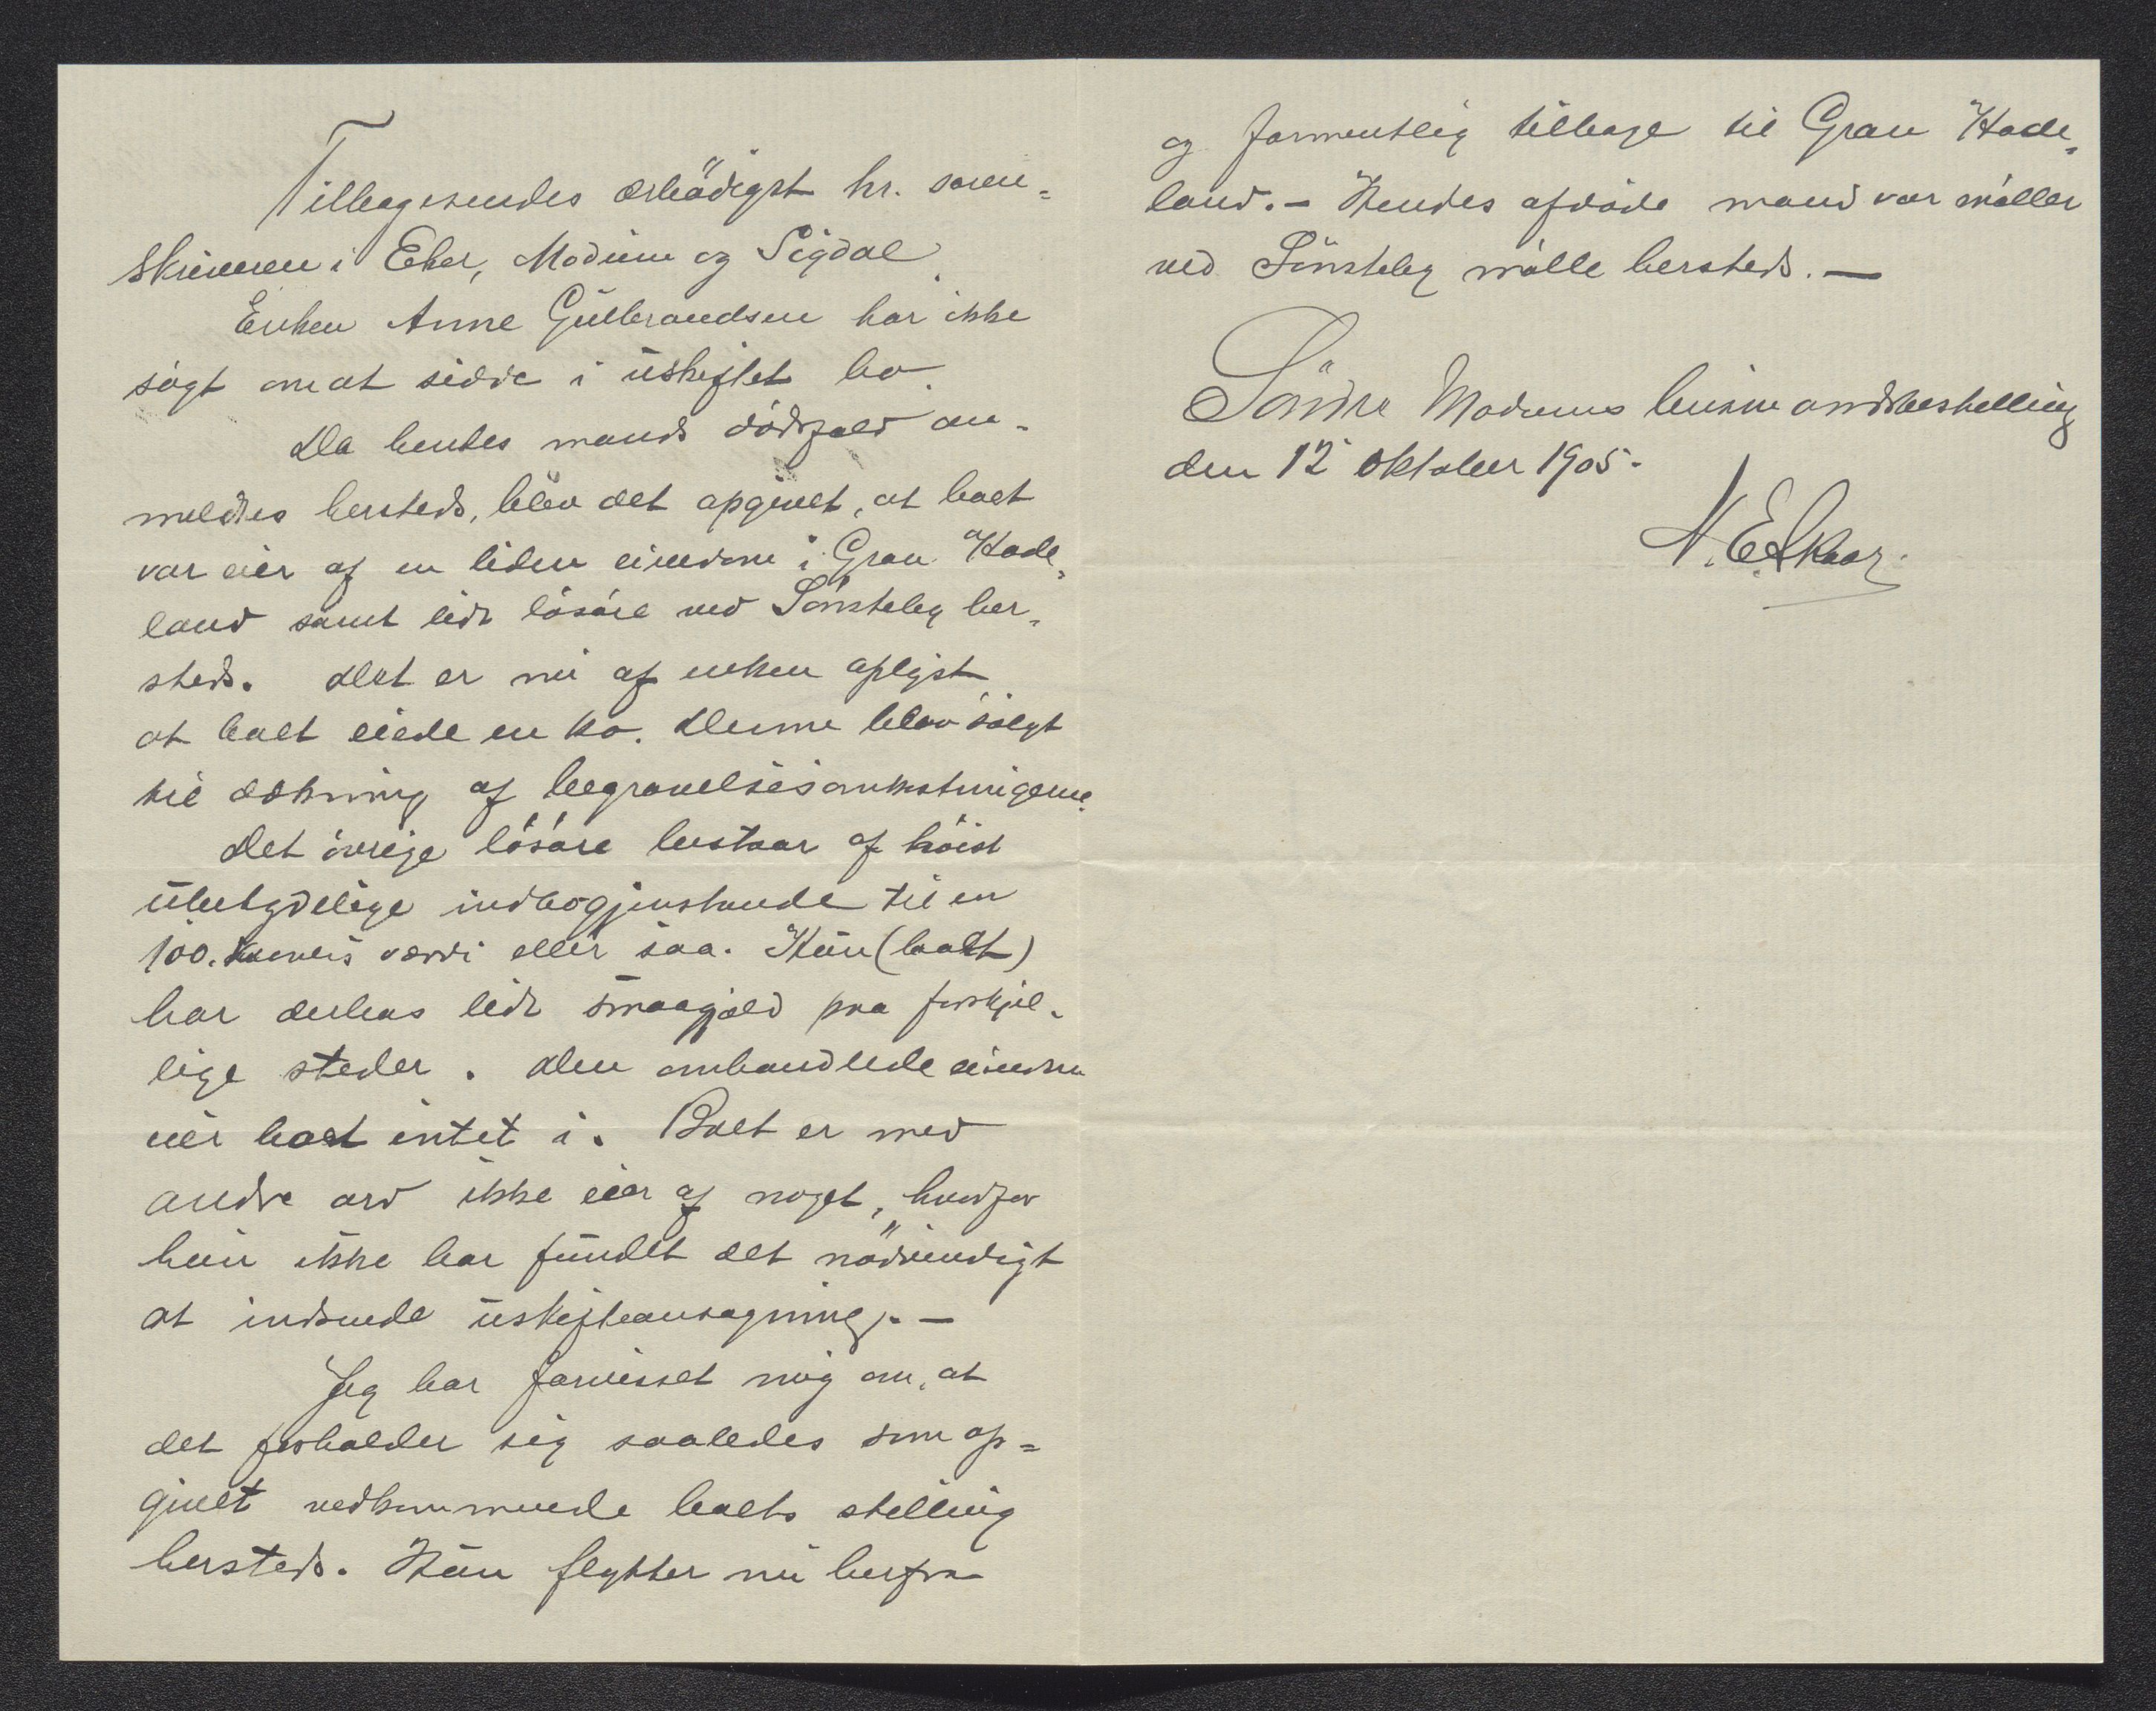 Tilbagesendes ærbödigst hr. soren=
skriveren i Eker, Modum og Sigdal.
Enken Anne Gulbrandsen har ikke
sögt om at sidde i uskiftet bo.
Da hendes mands dödsfald an-
meldtes hersteds, blev det opgivet, at boet
var eier af en liden eiendom i Gran Hade-
land samt lidt lösöre ved Sönsteby her-
steds. Det er nu af enken oplyst
at boet eiede en ko. Denne blev solgt
til dækning af begravelsesomkostningerne.
Det övrige lösöre bestaar af höist
ubetydelige indbogjenstande til en
100. kroners værdi eller saa. Hun (boet)
har derhos lidt smaagjæld paa forskjel-
lige steder. Den omhandlede eiendom
eier boet intet i. Boet er med
andre ord ikke eier af noget, hvorfor
hun ikke har fundet det nödvendigt
at indsende uskifteansögning. —
Jeg har forvisset mig om, at
det forholder sig saaledes som op=
givet vedkommende boets stilling
hersteds. Hun flytter nu herfra
og formentlig tilbage til Gran Hade-
land. — Hendes afdöde mand var möller
ved Sönsteby mölle hersteds. —
Söndre Modums lensmandsbestilling
den 12 oktober 1905.
N. E. Skaar.